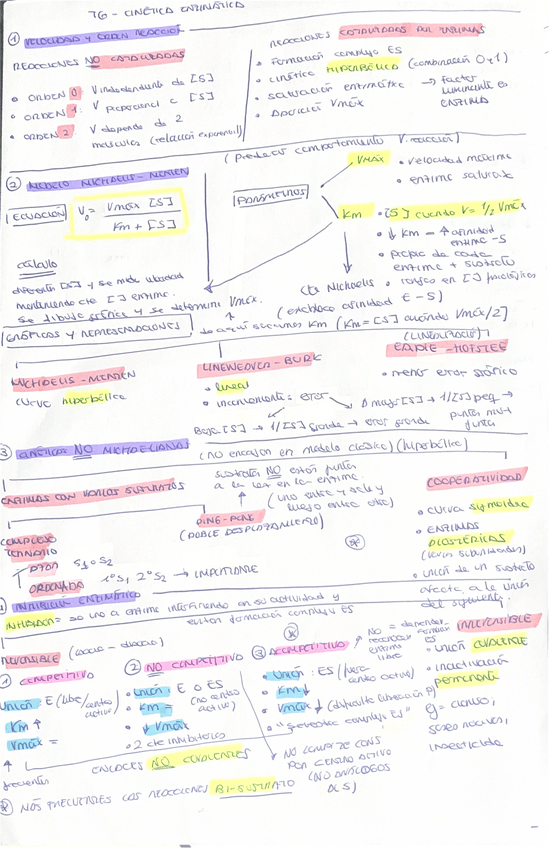 T6 - CINÉTICA ENZIMÁTICA
① VELOCIDAD Y ORDEN REACCIÓN
REACCIONES NO CATALIZADAS
• ORDEN 0: V independiente de [S]
• ORDEN 1: V proporcional a [S]
• ORDEN 2 V depende de 2
moléculas (relación exponencial)
REACCIONES CATALIZADAS POR ENZIMAS
• Formación complejo ES
• Cinética HIPERBÓLICA (combinación 0 y 1)
• Saturación enzimática → Factor
limitante es
enzima
• Aparición Vmáx
② MODELO MICHAELIS-MENTEN
(predecir comportamiento V reacción)
ECUACIÓN
V₀ = Vmáx [S] / Km + [S]
PARÁMETROS
Vmáx • velocidad máxima
• enzima saturada
Km • [S] cuando V = 1/2 Vmáx
• ↓ Km = ↑ afinidad
enzima - S
• propia de cada
enzima + sustrato
• rangos en [ ] fisiológicas
cte Michaelis
(establece afinidad E - S)
Cálculo
diferentes [S] y se mide velocidad
manteniendo cte [ ] enzima.
Se dibuja gráfica y se determina Vmáx.
de aquí sacamos Km (Km = [S] cuando Vmáx/2)
GRÁFICAS Y REPRESENTACIONES
MICHAELIS-MENTEN
curva hiperbólica
LINEWEAVER-BURK
• lineal
• inconveniente: error
Baja [S] → 1/[S] grande → error grande
A mayor [S] → 1/[S] peq →
puntos muy
juntos
EADIE-HOFSTEE
• menor error gráfico
③ CINÉTICAS NO MICHAELIANAS (no encajan en modelo clásico) (hiperbólica)
ENZIMAS CON VARIOS SUSTRATOS
sustratos NO están juntos
a la vez en la enzima
(uno entra y sale y
luego entra otro)
PING-PONG
(DOBLE DESPLAZAMIENTO)
COMPLEJO
TERNARIO
S1 o S2
ORDENADA 1º S1 2º S2 → IMPORTANTE
COOPERATIVIDAD
• curva sigmoidea
• ENZIMAS
ALOSTÉRICAS
(varias subunidades)
• unión de un sustrato
afecta a la unión
del siguiente
INHIBICIÓN ENZIMÁTICA
INHIBIDOR = se une a enzima interfiriendo en su actividad y
evitan formación complejo ES
REVERSIBLE
① COMPETITIVO
Unión: E (libre/centro
activo)
Km ↑
Vmáx =
↑
frecuentes
② NO COMPETITIVO
• Unión E o ES
(no centro
activo)
• Km =
• ↓ Vmáx
• 2 cte inhibitorias
③ ACOMPETITIVO
• Unión: ES (fuera
centro activo)
• Km ↓
• Vmáx ↓ (dificulta liberación P)
• NO COMPITE CONS
POR CENTRO ACTIVO
(NO ANÁLOGOS
DE S)
ENLACES NO COVALENTES
IRREVERSIBLE
• unión covalente
• inactivación
permanente
insecticida
MÁS FRECUENTES LAS REACCIONES BI-SUSTRATO